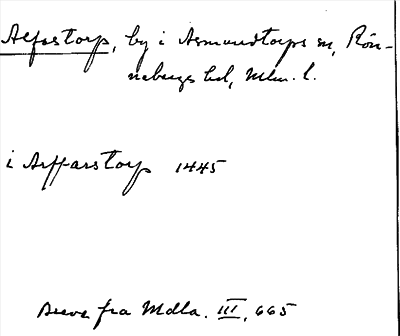 Alfastorp, by i Asmundtorps sn, Rön-
nebergs hd, Mlm. l.
i Arffarstorp 1445
Breve fra Mdla. III, 665